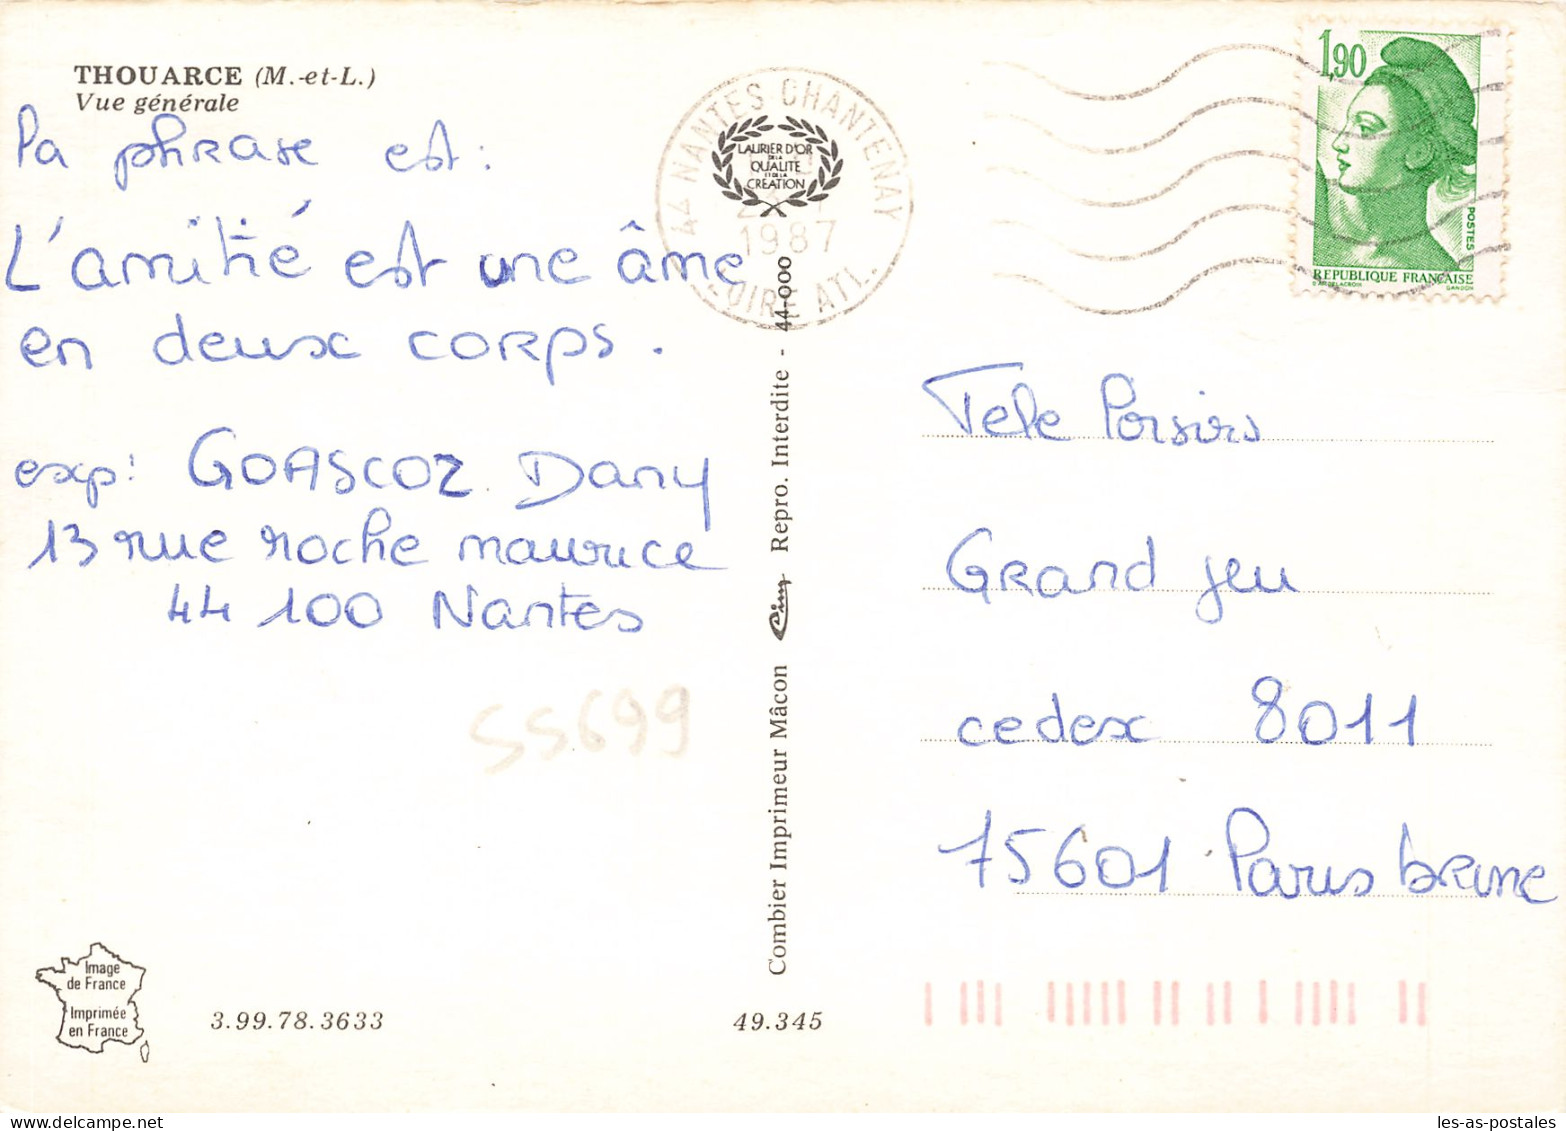 THOUARCE (M.-et-L.)
Vue générale
la phrase est :
L'amitié est une âme
en deux corps.
exp: GOASCOZ Dany
13 rue roche maurice
44 100 Nantes
55699
Image
de France
Imprimée
en France
3.99.78.3633
49.345
Combier Imprimeur Mâcon Cim Repro. Interdite - 44-000
44 NANTES CHANTENAY
1987
LOIRE ATL.
LAURIER D'OR
DE LA
QUALITE
ET DE LA
CREATION
1,90
POSTES
REPUBLIQUE FRANÇAISE
D'AP. DELACROIX GANDON
Tele Poisirs
Grand jeu
cedex 8011
75601 Paris brune
les-as-postales